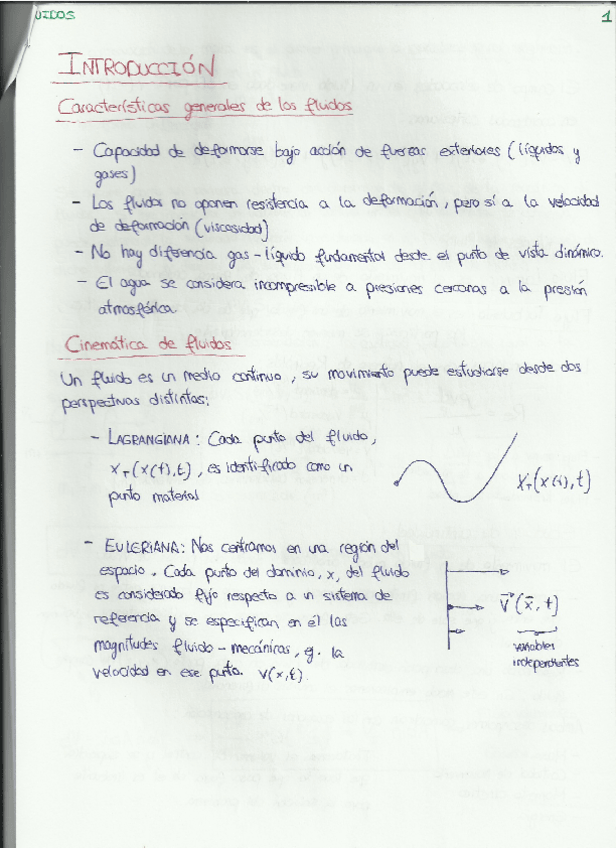 UIDOS
1
INTRODUCCIÓN
Características generales de los fluidos
- Capacidad de deformarse bajo acción de fuerzas exteriores (líquidos y
gases)
- Los fluidos no oponen resistencia a la deformación, pero sí a la velocidad
de deformación (viscosidad)
- No hay diferencia gas-líquido fundamental desde el punto de vista dinámico.
- El agua se considera incompresible a presiones cercanas a la presión
atmosférica.
Cinemática de fluidos
Un fluido es un medio continuo, su movimiento puede estudiarse desde dos
perspectivas distintas:
- LAGRANGIANA: Cada punto del fluido,
X_T(x(t),t), es identificado como un
punto material
X_T(x(t),t)
- EULERIANA: Nos centramos en una región del
espacio. Cada punto del dominio, x, del fluido
es considerado fijo respecto a un sistema de
referencia y se especifican en él las
magnitudes fluido-mecánicas, eg. la
velocidad en ese punto. v(x,t).
V⃗(x⃗,t)
variables
independientes